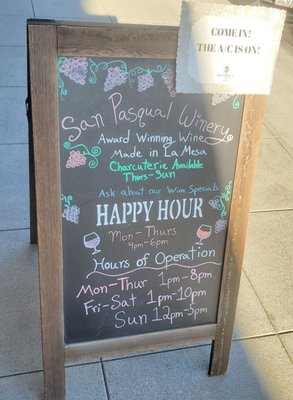 COME IN!
THE A/C IS ON!
San Pasqual Winery
Award Winning Wine
Made in La Mesa
Charcuterie Available
Thurs-Sun
Ask about our Wine Specials
HAPPY HOUR
Mon-Thurs
4pm-6pm
Hours of Operation
Mon-Thur 1pm-8pm
Fri-Sat 1pm-10pm
Sun 12pm-5pm